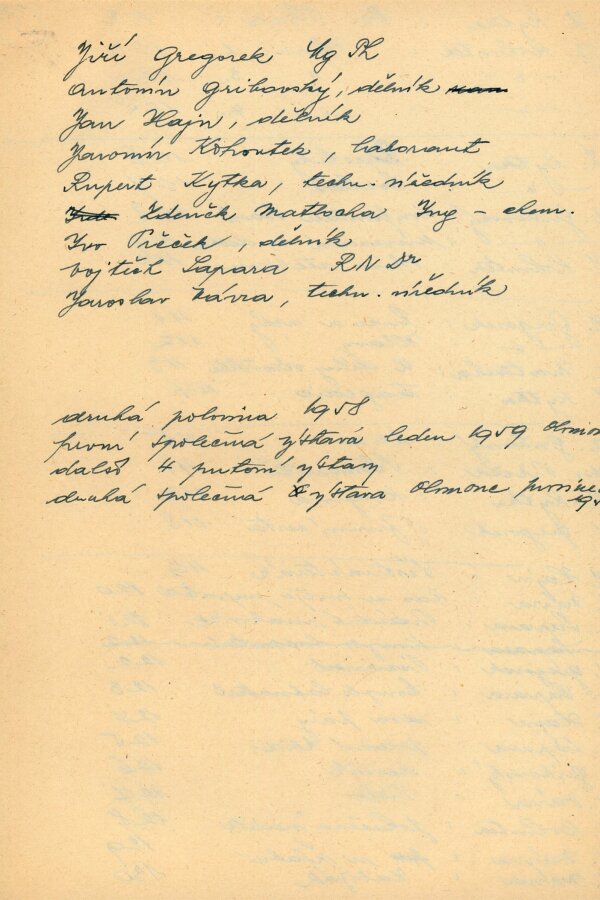 Jiří Gregorek Mg Ph
Antonín Gribovský, dělník
Jan Hajn, dělník
Jaromír Kohoutek, laborant
Rupert Kytka, techn. úředník
Zdeněk Matlocha Ing – chem.
Ivo Přeček, dělník
Vojtěch Sapara RNDr
Jaroslav Vávra, techn. úředník
druhá polovina 1958
první společná výstava leden 1959 Olomouc
další 4 putovní výstavy
druhá společná výstava Olomouc prosinec